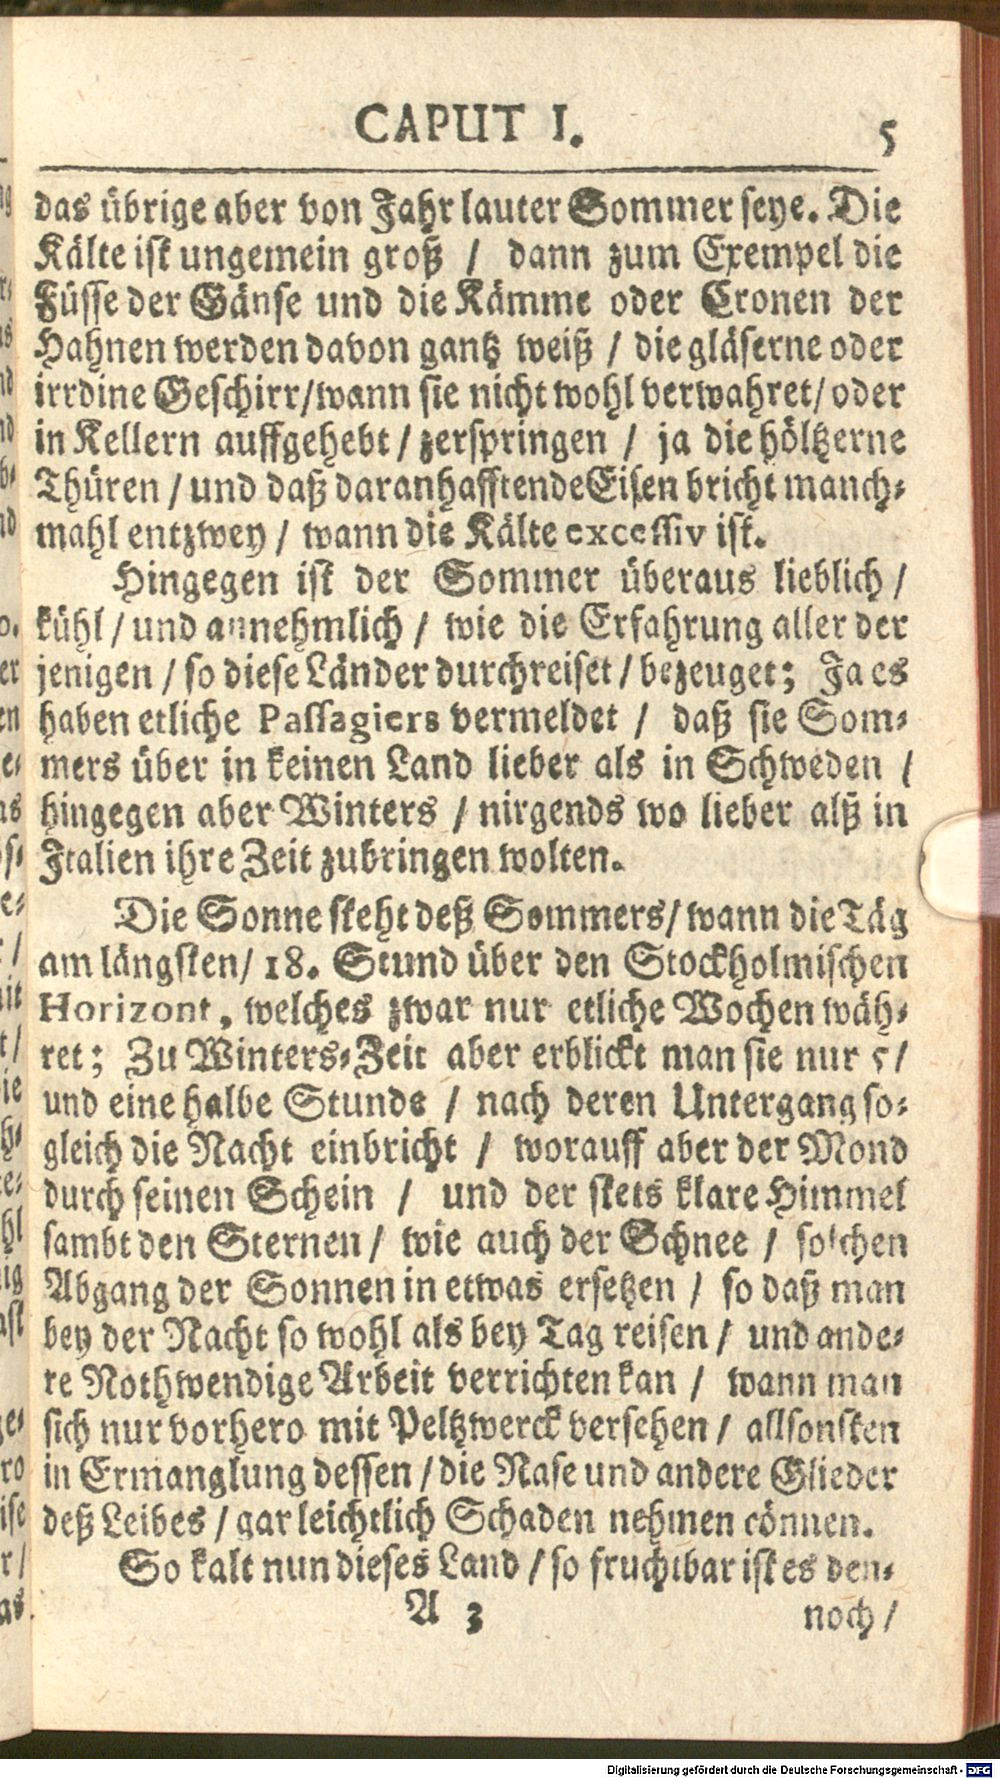 CAPUT I. 5
das übrige aber von Jahr lauter Sommer seye. Die
Kälte ist ungemein groß / dann zum Exempel die
Füsse der Gänse und die Kämme oder Cronen der
Hahnen werden davon gantz weiß / die gläserne oder
irrdine Geschirr/wann sie nicht wohl verwahret/ oder
in Kellern auffgehebt / zerspringen / ja die höltzerne
Thüren / und daß daranhafftende Eisen bricht manch-
mahl entzwey / wann die Kälte excessiv ist.
Hingegen ist der Sommer überaus lieblich /
kühl / und annehmlich / wie die Erfahrung aller der
jenigen / so diese Länder durchreiset / bezeuget; Ja es
haben etliche Passagiers vermeldet / daß sie Som-
mers über in keinen Land lieber als in Schweden /
hingegen aber Winters / nirgends wo lieber alß in
Italien ihre Zeit zubringen wolten.
Die Sonne steht deß Sommers/ wann die Täg
am längsten/ 18. Stund über den Stockholmischen
Horizont, welches zwar nur etliche Wochen wäh-
ret; Zu Winters-Zeit aber erblickt man sie nur 5/
und eine halbe Stunde / nach deren Untergang so-
gleich die Nacht einbricht / worauff aber der Mond
durch seinen Schein / und der stets klare Himmel
sambt den Sternen / wie auch der Schnee / solchen
Abgang der Sonnen in etwas ersetzen / so daß man
bey der Nacht so wohl als bey Tag reisen / und ande-
re Nothwendige Arbeit verrichten kan / wann man
sich nur vorhero mit Peltzwerck versehen / allsonsten
in Ermanglung dessen / die Nase und andere Glieder
deß Leibes / gar leichtlich Schaden nehmen cönnen.
So kalt nun dieses Land / so fruchtbar ist es den-
A 3 noch /
Digitalisierung gefördert durch die Deutsche Forschungsgemeinschaft - DFG